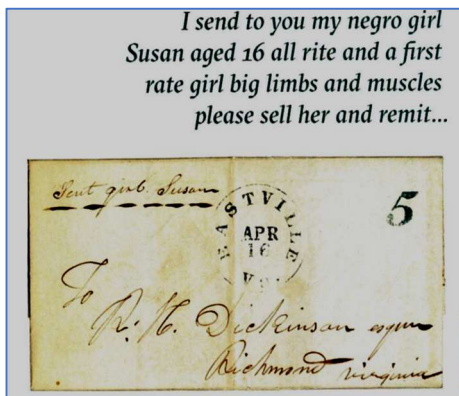 I send to you my negro girl
Susan aged 16 all rite and a first
rate girl big limbs and muscles
please sell her and remit...
Sent girl Susan
5
EASTVILLE
APR
16
Va.
To
R. H. Dickinson esqr
Richmond virginia